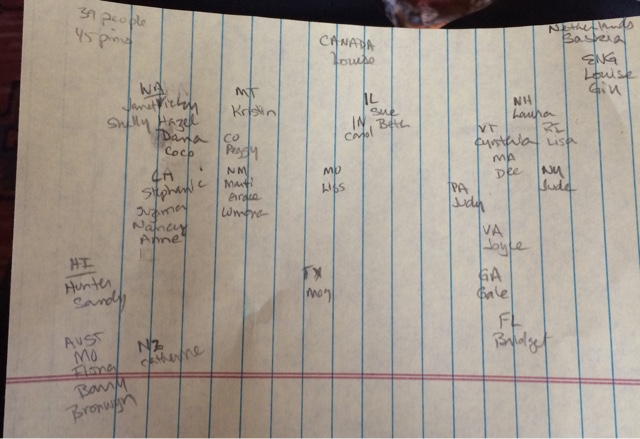 39 people
45 pins
CANADA
Louise
Netherlands
Saskia
ENG
Louise
Gin
WA
Janet Vicky
Shelly Hazel
Dana
Coco
MT
Kristin
CO
Peggy
IL
Sue
IN Beth
Carol
NH
Laura
VT RI
Cynthia Lisa
MA
Dee
NY
Jude
CA
Stephanie
Suzanne
Nancy
Anne
NM
Marti
Grace
MO
Libs
PA
Judy
VA
Joyce
HI
Hunter
Sandy
TX
Meg
GA
Gale
FL
Bridget
AUST
MO
Fiona
Barry
Bronwyn
NZ
Catherine